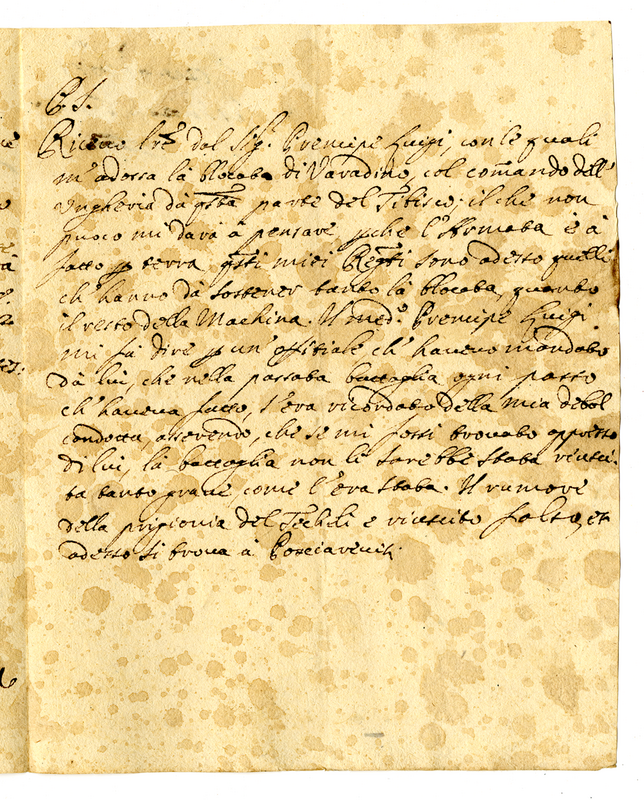 P.S.
Ricevo lre dal Sigr. Prencipe Luigi, con le quali
m'adossa la blocata di Varadino, col comando dell'
Ungheria da qsta parte del Tibisco; il che non
puoco mi darà à pensare, pche l'Armata è à
fatto p terra, qsti miei Regti sono adesso quelli
ch'hanno dà sostener tanto la blocata, quanto
il resto della Machina. Il medo. Prencipe Luigi
mi fà dire p un'offitiale ch'havevo mandato
dà lui, che nella passata battaglia ogni passo
ch'haveva fatto, s'era ricordato della mia debol
condotta, asserendo, che se mi fossi trovato appresso
di lui, la battaglia non li sarebbe stata riusci-
ta tanto grave, come l'era stata. Il rumore
della prigionia del Techeli e riuscito falso, et
adesso si trova à